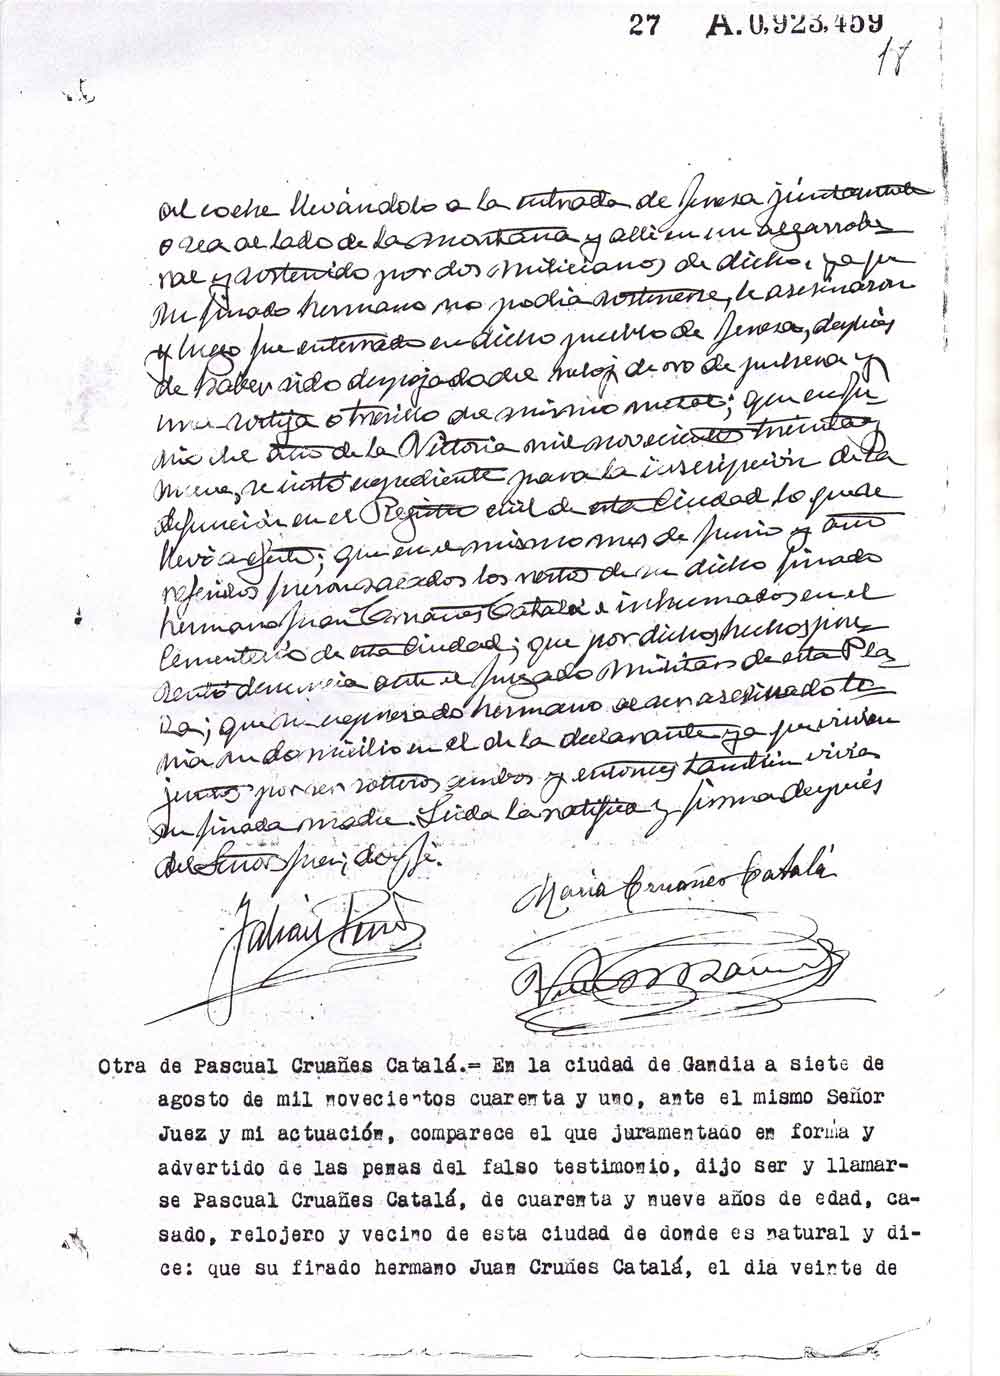 27 A.0,923,459
18
al coche llevándolo a la entrada de Jeresa juntamente
o sea al lado de la montaña y alli en un algarrober
ral y sostenido por dos milicianos de dicho, ya que
su finado hermano no podia sostenerse, le asesinaron
y luego fue enterrado en dicho pueblo de Jeresa, después
de haber sido despojado del reloj de oro de pulsera y
una sortija o tresillo del mismo metal; que en Ju
nio del año de la Victoria mil novecientos treinta y
nueve, se instó expediente para la inscripción de la
defunción en el Registro civil de esta Ciudad lo que se
llevó a efecto; que en el mismo mes de Junio y año
referidos fueron sacados los restos de su dicho finado
hermano Juan Cruañes Catalá e inhumados en el
Cementerio de esta Ciudad; que por dichos hechos pre
sentó denuncia ante el Juzgado Militar de esta Pla
za; que su expresado hermano al ser asesinado te
nia su domicilio en el de la declarante ya que vivian
juntos por ser solteros ambos y entonces también vivia
su finada madre. Leida la ratifica y firma después
del Señor Juez; doy fe.
María Cruañes Catalá
Otra de Pascual Cruañes Catalá.= En la ciudad de Gandia a siete de
agosto de mil novecientos cuarenta y uno, ante el mismo Señor
Juez y mi actuación, comparece el que juramentado en forma y
advertido de las penas del falso testimonio, dijo ser y llamar-
se Pascual Cruañes Catalá, de cuarenta y nueve años de edad, ca-
sado, relojero y vecino de esta ciudad de donde es natural y di-
ce: que su finado hermano Juan Cruñes Catalá, el dia veinte de